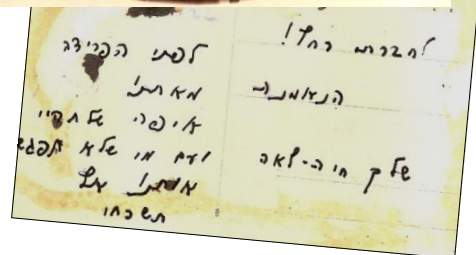 לחברתי רחל!
הנאמנה
שלך חיה-לאה
לפני הפרידה
איפה
ועם מי שלא תפגשי
אותי אל
תשכחי